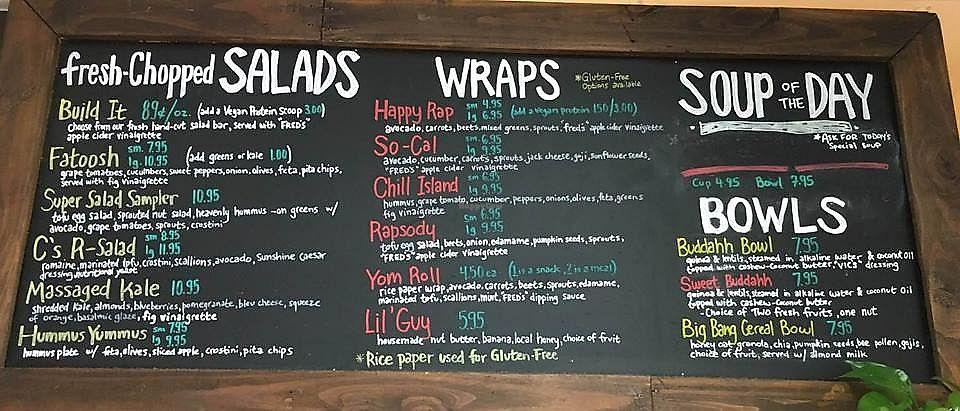 fresh-Chopped SALADS
Build It 89¢/oz. (add a Vegan Protein Scoop 3.00)
choose from our fresh hand-cut salad bar, served with "FRED'S"
apple cider vinaigrette
Fatoosh sm 7.95
lg. 10.95 (add greens or kale 1.00)
grape tomatoes, cucumbers, sweet peppers, onion, olives, feta, pita chips,
served with fig vinaigrette
Super Salad Sampler 10.95
tofu egg salad, sprouted nut salad, heavenly hummus -on greens w/
avocado, grape tomatoes, sprouts, crostini
C's R-Salad sm 8.95
lg 11.95
romaine, marinated tofu, crostini, scallions, avocado, Sunshine Caesar
dressing, nutritional yeast
Massaged Kale 10.95
shredded kale, almonds, blueberries, pomegranate, bleu cheese, squeeze
of orange, basalmic glaze, fig vinaigrette
Hummus Yummus sm 7.95
lg 9.95
hummus plate w/ feta, olives, sliced apple, crostini, pita chips
WRAPS
*Gluten-Free
Options available
Happy Rap sm 4.95
lg 6.95 (add a vegan protein 1.50/3.00)
avocado, carrots, beets, mixed greens, sprouts, fred's apple cider vinaigrette
So-Cal sm 6.95
lg 9.95
avocado, cucumber, carrots, sprouts, jack cheese, goji, sunflower seeds,
"FRED'S" apple cider vinaigrette
Chill Island sm 6.95
lg 9.95
hummus, grape tomato, cucumber, peppers, onions, olives, feta, greens
fig vinaigrette
Rapsody sm 6.95
lg 9.95
tofu egg salad, beets, onion, edamame, pumpkin seeds, sprouts,
"FRED'S" apple cider vinaigrette
Yom Roll 4.50 ea. (1 is a snack, 2 is a meal)
rice paper wrap, avocado, carrots, beets, sprouts, edamame,
marinated tofu, scallions, mint, FRED'S dipping sauce
Lil' Guy 5.95
housemade nut butter, banana, local honey, choice of fruit
*Rice paper used for Gluten-Free
SOUP OF THE DAY
*ASK FOR TODAY'S
Special Soup
Cup 4.95 Bowl 7.95
BOWLS
Buddahh Bowl 7.95
quinoa & lentils, steamed in alkaline water & coconut oil
topped with cashew-coconut butter, "VIC'S" dressing
Sweet Buddahh 7.95
quinoa & lentils, steamed in alkaline water & coconut oil
topped with cashew-coconut butter
-Choice of TWO fresh fruits, one nut
Big Bang Cereal Bowl 7.95
honey oat granola, chia, pumpkin seeds, bee pollen, gojis,
choice of fruit, served w/ almond milk